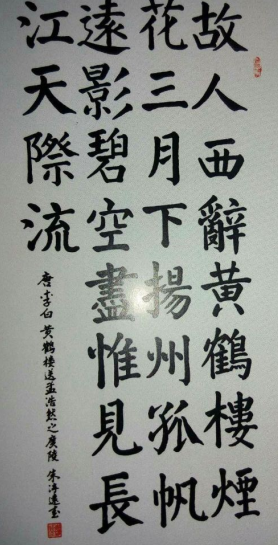 故人西辭黃鶴樓煙
花三月下揚州孤帆
遠影碧空盡惟見長
江天際流
唐李白黃鶴樓送孟浩然之廣陵